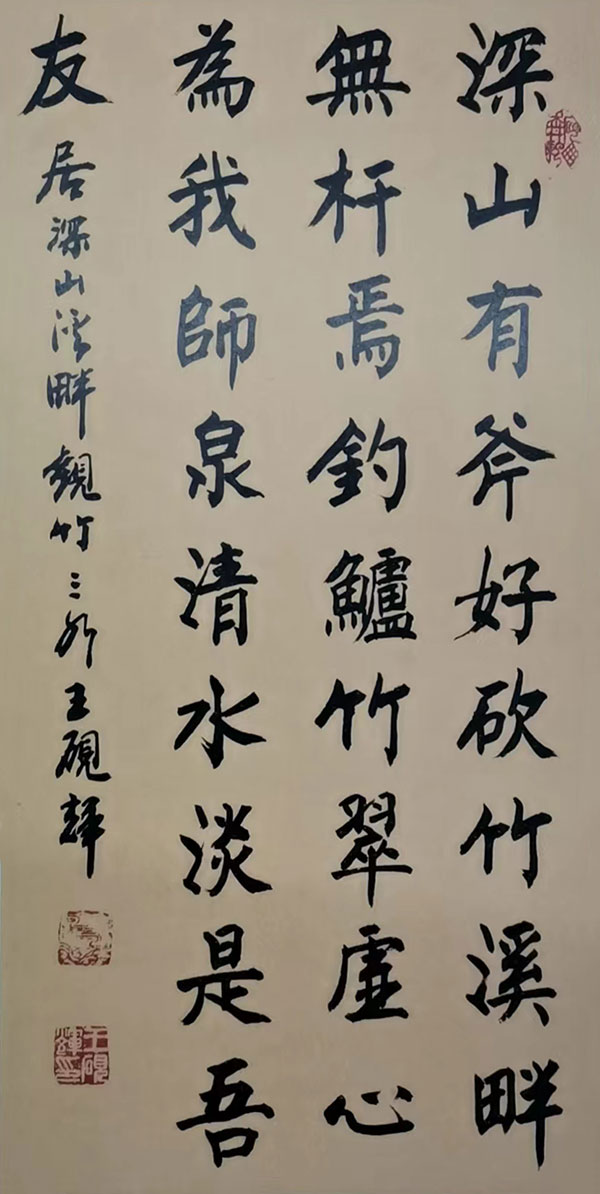 深山有斧好砍竹溪畔
無杆焉釣鱸竹翠虛心
為我師泉清水淡是吾
友
居深山溪畔觀竹三外王硯輝
王硯輝印